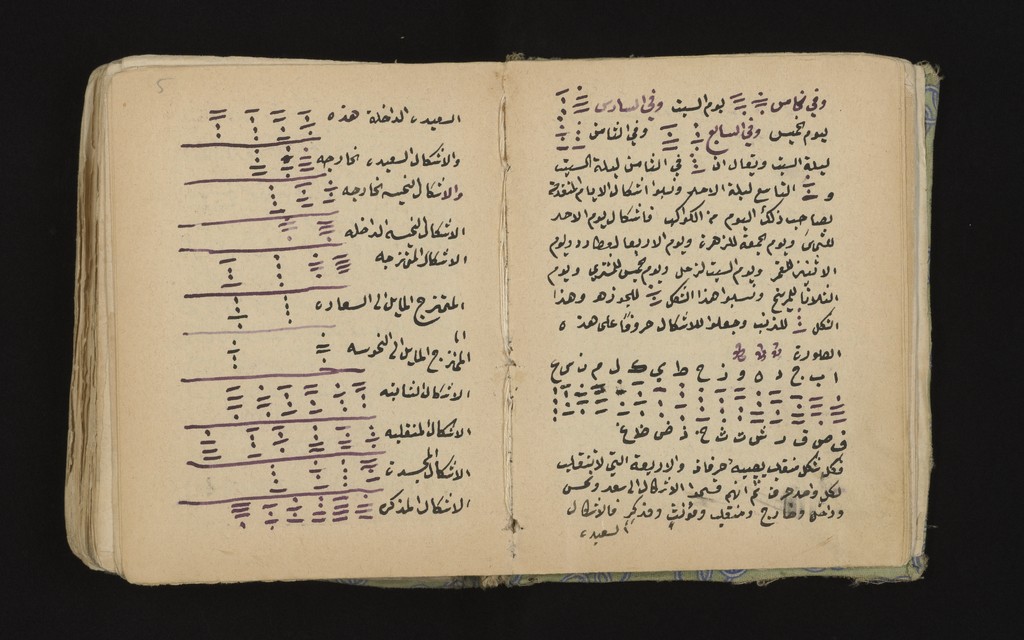 وفي خامس يوم السبت وفي السادس
يوم الخميس وفي السابع وفي الثامن
ليلة السبت ويقال ان في الثامن ليلة السبت
و التاسع ليلة الاحد ونسبوا اشكال الايام المتقدمة
لصاحب ذلك اليوم من الكواكب فاشكال يوم الاحد
للشمس ويوم الجمعة للزهرة ويوم الاربعا لعطارد ويوم
الاثنين للقمر ويوم السبت لزحل ويوم الخميس للمشتري ويوم
الثلاثا للمريخ ونسبوا هذا الشكل للجوزهر وهذا
الشكل للذنب وجعلوا للاشكال حروفا على هذه
الصورة
ا ب ج د ه و ز ح ط ي ك ل م ن س ع
ف ص ق ر ش ت ث خ ذ ض ظ غ
فكل شكل منقلب يصيبه حرفان والاربعة التي لا تنقلب
لكل واحد حرف ثم انهم قسموا الاشكال الى سعد ونحس
وداخل وخارج ومنقلب ومؤنث ومذكر فالاشكال
السعيده
السعيده الداخلة هذه
والاشكال السعيده الخارجه
والاشكال النحيسه الخارجه
الاشكال النحيسه الداخله
الاشكال الممتزجه
الممتزج المايل الى السعاده
الممتزج المايل الى النحوسه
الاشكال الثابته
الاشكال المنقلبه
الاشكال المجسدة
الاشكال المذكره
5